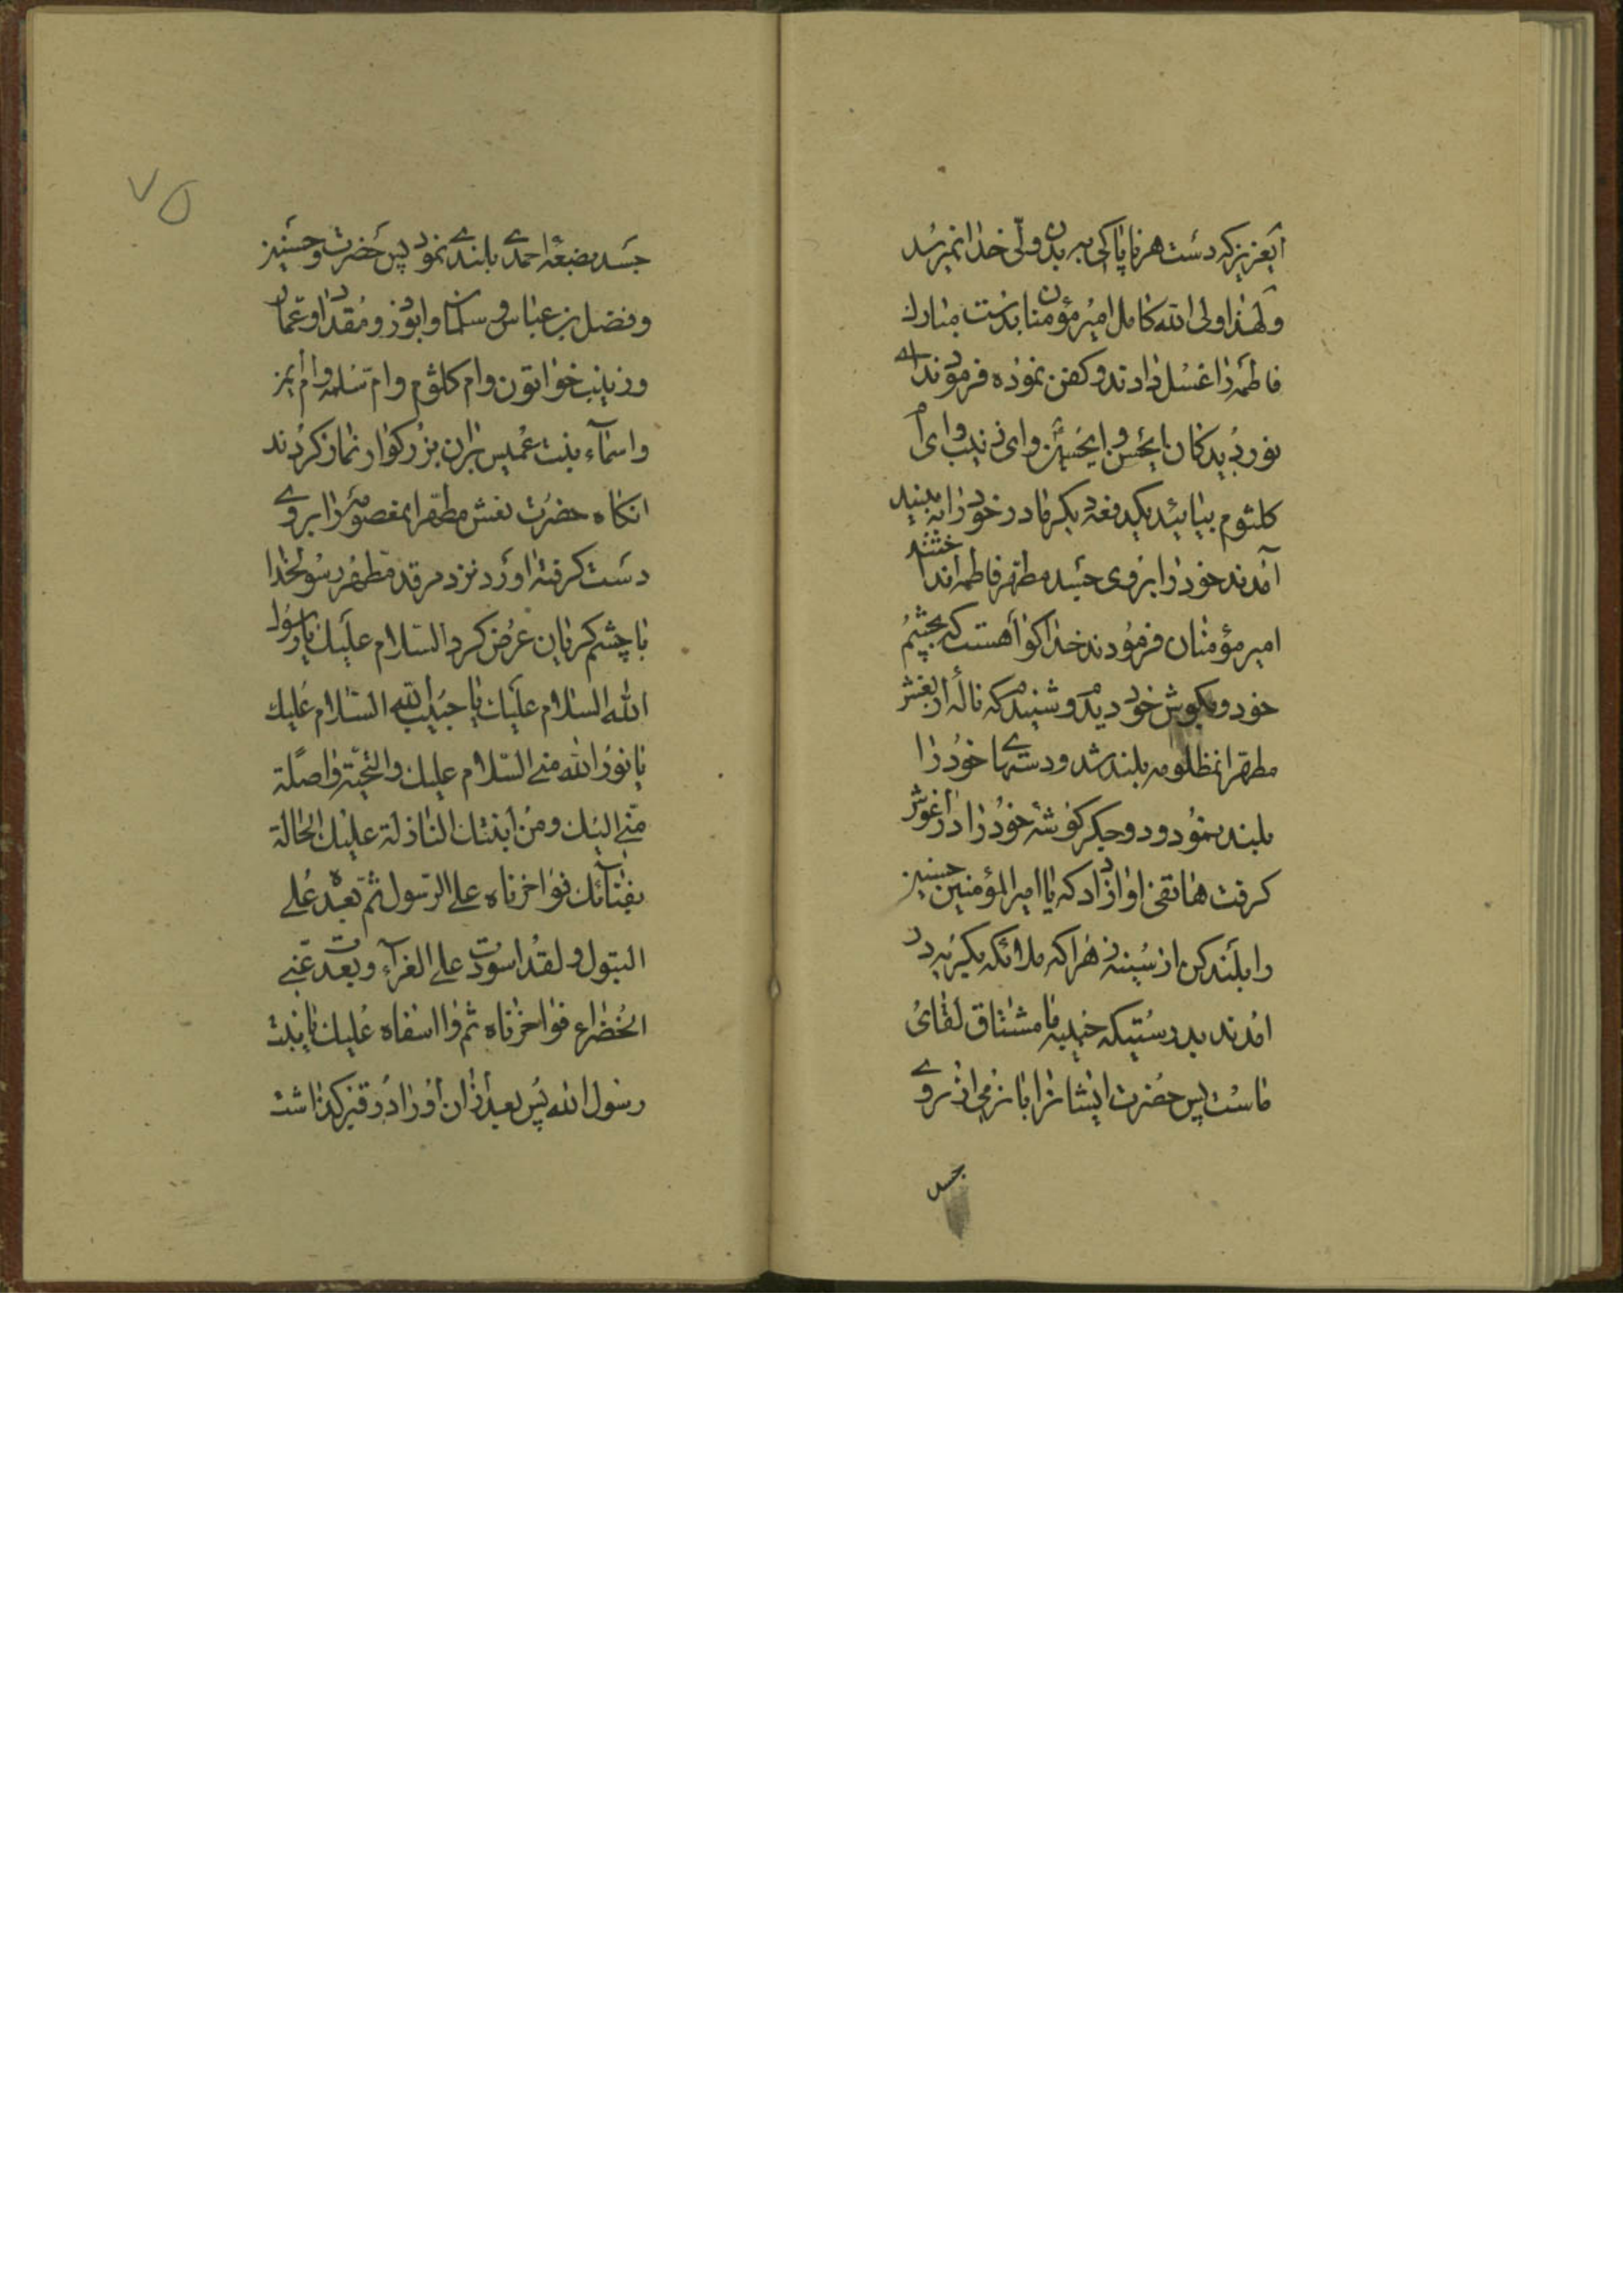 ایعزیز که دست هر ناپاکی به بدن ولی خدا نمیرسد
و لهذا ولی الله کامل امیر مؤمنان بدست مبارک
فاطمه را غسل دادند و کفن نموده فرمودند ای
نور دیدکان ایحسن و ایحسین و ای زینب و ای ام
کلثوم بیائید یکدفعه دیکر مادر خود را به بینید
آمدند خود را بروی جسد مطهر فاطمه انداختند
امیر مؤمنان فرمودند خدا کواهست که بچشم
خود دیدم و بکوش خود شنیدم که ناله از نعش
مطهر انمظلومه بلند شد و دستهای خود را
بلند نمود و دو جکر کوشه خود را در اغوش
کرفت هاتفی اواز داد که یا امیر المؤمنین حسنین
را بلند کن از سینه زهرا که ملائکه بکریه در
امدند بدرستیکه حبیبه ما مشتاق لقای
ماست پس حضرت ایشانرا بانرمی از روی
جسد
۷۵
جسد بضعه احمدی بلند نمود پس حضرت و حسنین
و فضل بن عباس و سلمان و ابوذر و مقداد و عمار
و زینب خواتون و ام کلثوم و ام سلمه و ام ایمن
و اسماء بنت عمیس بران بزرکوار نماز کردند
انکاه حضرت نعش مطهر انمعصومه را بروی
دست کرفته اورد نزد مرقد مطهر رسولخدا
با چشم کریان عرض کرد السلام علیک یا رسول
الله السلام علیک یا حبیب الله السلام علیک
یا نور الله منی السلام علیک و التحیة واصلة
منی الیک و من ابنتک النازلة علیک الحالة
بفنائک فواحزناه علی الرسول ثم بعده علی
البتول و لقد اسودت علی الغبراء و بعدت عنی
الخضراء فواحزناه ثم وا اسفاه علیک یا بنت
رسول الله پس بعد از ان او را در قبر کذاشت